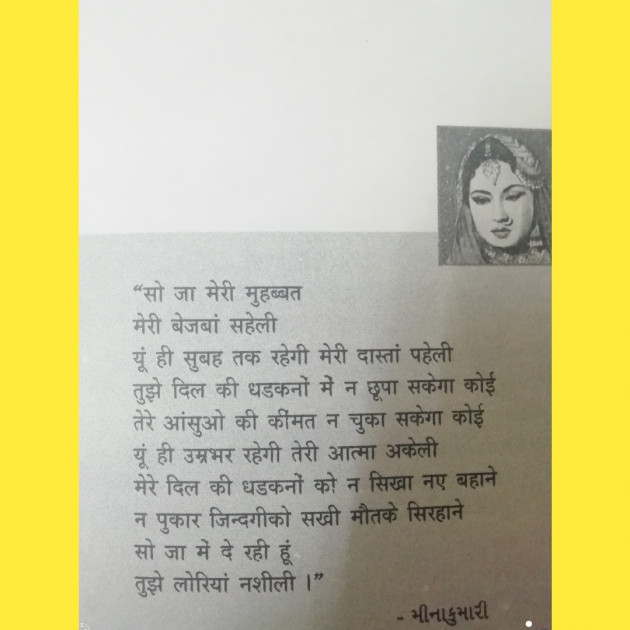 “सो जा मेरी मुहब्बत
मेरी बेजबां सहेली
यूं ही सुबह तक रहेगी मेरी दास्तां पहेली
तुझे दिल की धडकनों में न छूपा सकेगा कोई
तेरे आंसुओ की कींमत न चुका सकेगा कोई
यूं ही उम्रभर रहेगी तेरी आत्मा अकेली
मेरे दिल की धडकनों को न सिखा नए बहाने
न पुकार जिन्दगीको सखी मौतके सिरहाने
सो जा में दे रही हूं
तुझे लोरियां नशीली ।”
- મીનાકુમારી